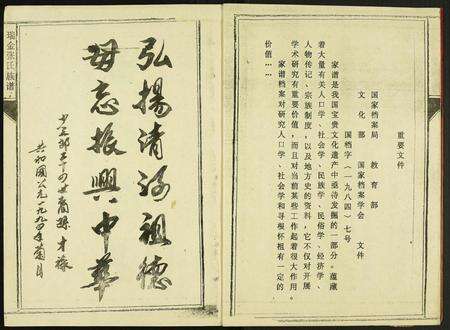 重要文件
国家档案局 教育部
文化部 国家档案学会 文件
国档字(一九八四)七号
家谱是我国宝贵文化遗产中亟待发掘的一部分。蕴藏
着大量有关人口学、社会学、民族学、民俗学、经济学、
人物传记、宗族制度,以及地方史的资料,它不仅对开展
学术研究有重要价值,而且对当前某些工作起着很大作用。
家谱档案对研究人口学、社会学和寻根怀祖有一定的
价值……
弘揚清河祖德
毋忘振興中華
共和國公元一九九四年
瑞金张氏族谱